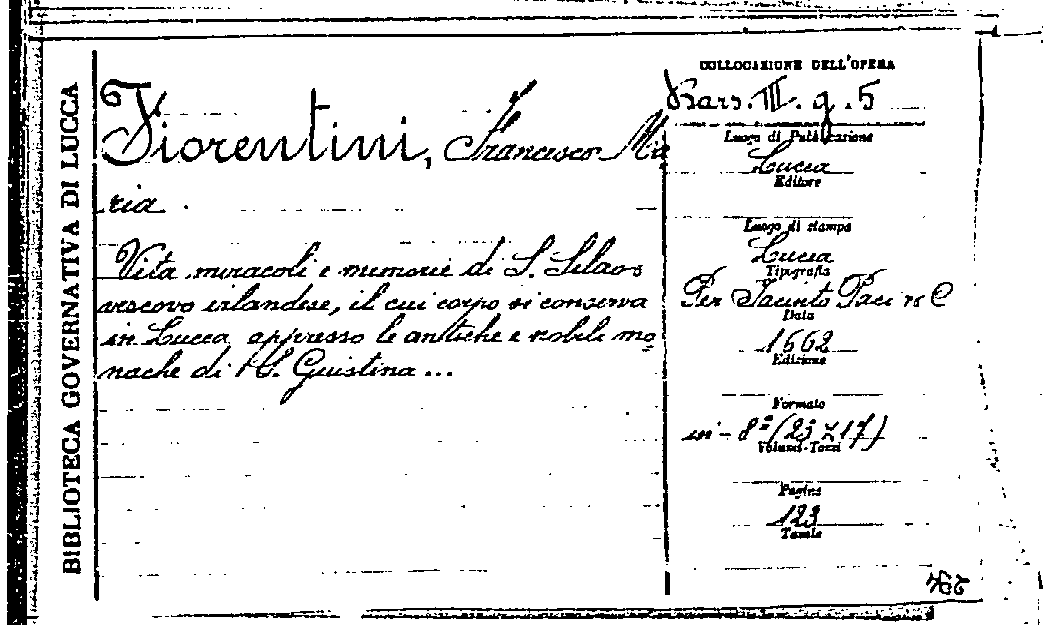 BIBLIOTECA GOVERNATIVA DI LUCCA
Fiorentini, Francesco Ma
ria.
Vita miracoli e memorie di S. Silaos
vescovo irlandese, il cui corpo si conserva
in Lucca appresso le antiche e nobili mo
nache di S. Giustina...
COLLOCAZIONE DELL'OPERA
Bars. III. g. 5
Luogo di Pubblicazione
Lucca
Editore
Luogo di stampa
Lucca
Tipografia
Per Jacinto Paci
Data
1662
Edizione
Formato
in-8º (23 x 17)
Volumi-Tomi
Pagine
123
Tavole